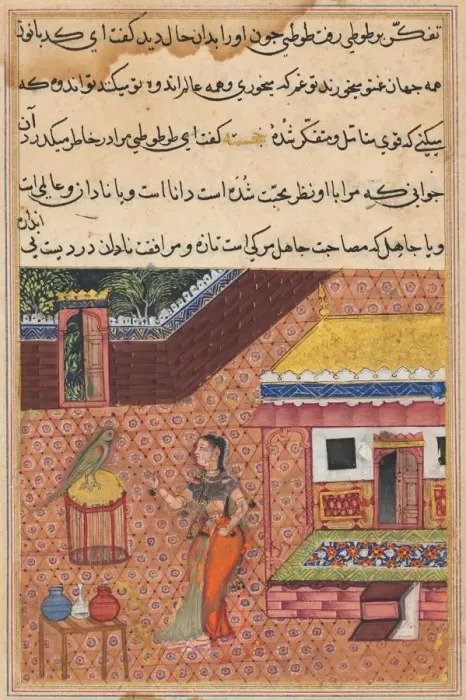 تفکّر بر طوطی رفت طوطی چون او را بدان حال دید گفت ای کدبانو
همه جهان غم تو میخورند تو غم که میخوری و همه عالم اندوه تو میکنند تو اندوه که
میکنی که قوی متامل و متفکر شدهٔ خجسته گفت ای طوطی مرا در خاطر میگذرد آن
جوانی که مرا با او نظر محبت شده است دانا است و یا نادان و عالم است
و یا جاهل که مصاحبت جاهل مرکی است تازه و مرافقت نادان دردیست بی
اندازه